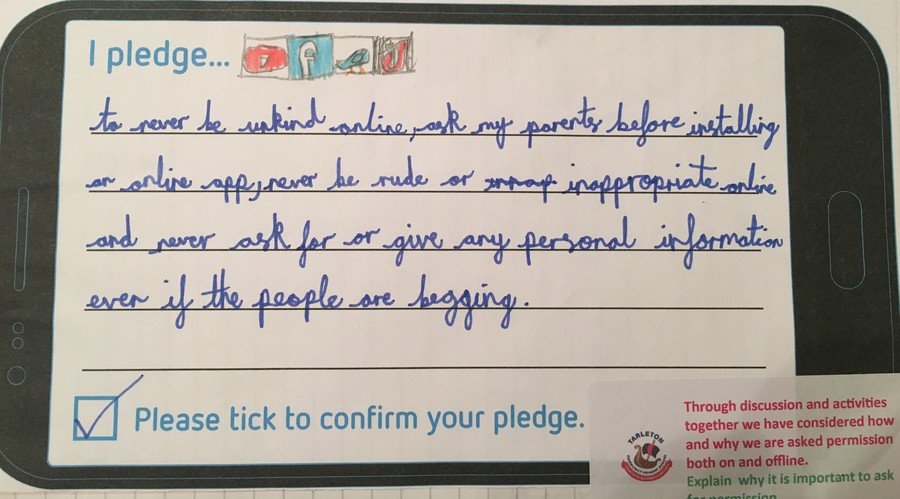 I pledge...
to never be unkind online, ask my parents before installing
an online app, never be rude or inappropriate online
and never ask for or give any personal information
ever if the people are begging.
Please tick to confirm your pledge.
TARLETON
Through discussion and activities
together we have considered how
and why we are asked permission
both on and offline.
Explain why it is important to ask
for permission